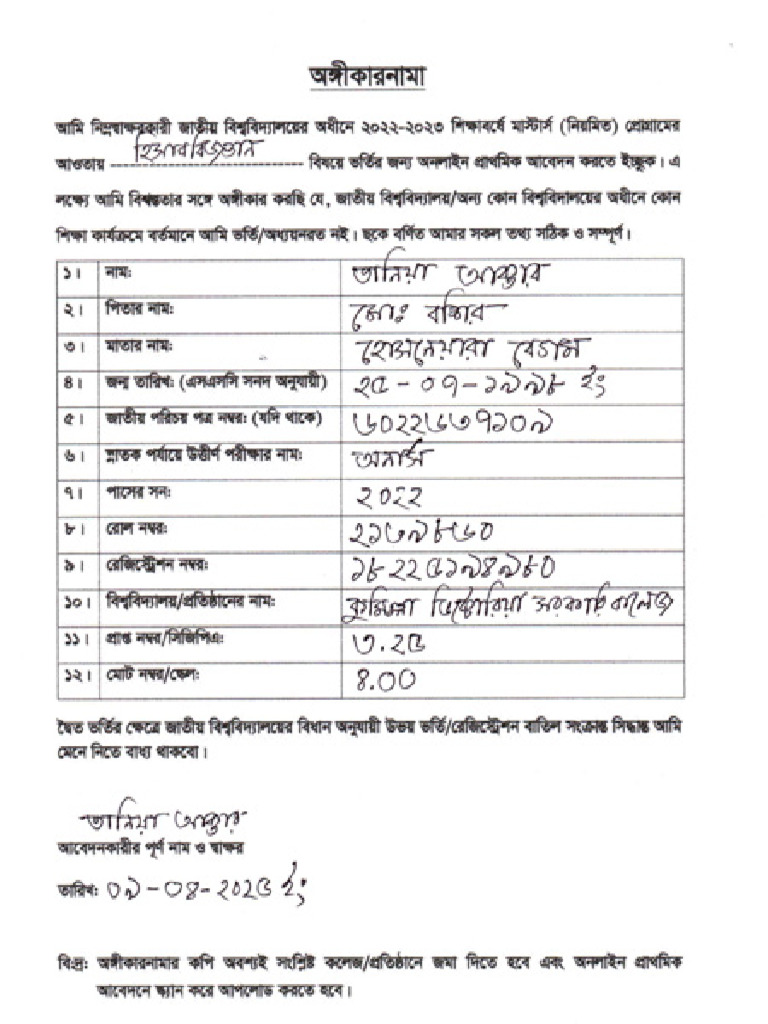 অঙ্গীকারনামা
আমি নিম্নস্বাক্ষরকারী জাতীয় বিশ্ববিদ্যালয়ের অধীনে ২০২২-২০২৩ শিক্ষাবর্ষে মাস্টার্স (নিয়মিত) প্রোগ্রামের
আওতায় হিসাববিজ্ঞান বিষয়ে ভর্তির জন্য অনলাইন প্রাথমিক আবেদন করতে ইচ্ছুক। এ
লক্ষ্যে আমি বিশ্বস্ততার সঙ্গে অঙ্গীকার করছি যে, জাতীয় বিশ্ববিদ্যালয়/অন্য কোন বিশ্ববিদ্যালয়ের অধীনে কোন
শিক্ষা কার্যক্রমে বর্তমানে আমি ভর্তি/অধ্যয়নরত নই। ছকে বর্ণিত আমার সকল তথ্য সঠিক ও সম্পূর্ণ।
১। নাম: তানিয়া আক্তার
২। পিতার নাম: মোঃ বশির
৩। মাতার নাম: হোসনেয়ারা বেগম
৪। জন্ম তারিখ: (এসএসসি সনদ অনুযায়ী) ২৫-০৭-১৯৯৮ ইং
৫। জাতীয় পরিচয় পত্র নম্বর: (যদি থাকে) ৬০২২৬৩৭১০৯
৬। স্নাতক পর্যায়ে উত্তীর্ণ পরীক্ষার নাম: অনার্স
৭। পাসের সন: ২০২২
৮। রোল নম্বর: ২১৬৯৮৬০
৯। রেজিস্ট্রেশন নম্বর: ১৮২২৫১৯৪৯৮০
১০। বিশ্ববিদ্যালয়/প্রতিষ্ঠানের নাম: কুমিল্লা ভিক্টোরিয়া সরকারি কলেজ
১১। প্রাপ্ত নম্বর/সিজিপিএ: ৩.২৫
১২। মোট নম্বর/স্কেল: ৪.০০
দ্বৈত ভর্তির ক্ষেত্রে জাতীয় বিশ্ববিদ্যালয়ের বিধান অনুযায়ী উভয় ভর্তি/রেজিস্ট্রেশন বাতিল সংক্রান্ত সিদ্ধান্ত আমি
মেনে নিতে বাধ্য থাকবো।
তানিয়া আক্তার
আবেদনকারীর পূর্ণ নাম ও স্বাক্ষর
তারিখ: ০৯-০৪-২০২৫ ইং
বি:দ্র: অঙ্গীকারনামার কপি অবশ্যই সংশ্লিষ্ট কলেজ/প্রতিষ্ঠানে জমা দিতে হবে এবং অনলাইন প্রাথমিক
আবেদনে স্ক্যান করে আপলোড করতে হবে।